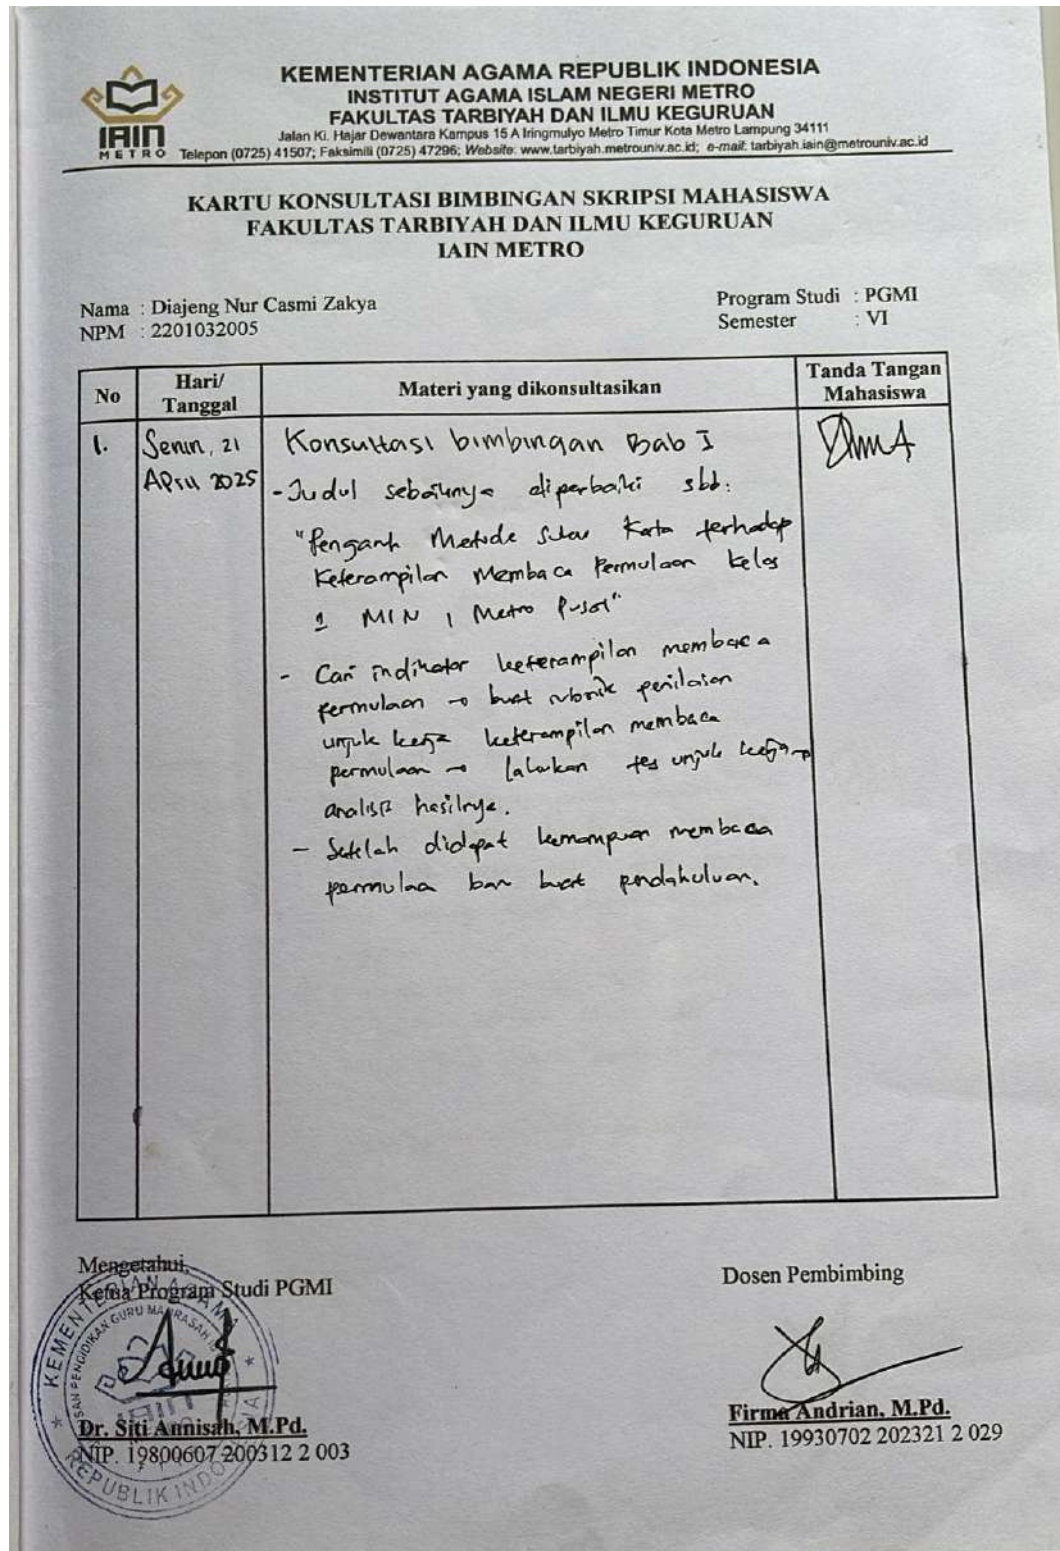 KEMENTERIAN AGAMA REPUBLIK INDONESIA
INSTITUT AGAMA ISLAM NEGERI METRO
FAKULTAS TARBIYAH DAN ILMU KEGURUAN
Jalan Ki. Hajar Dewantara Kampus 15 A Iringmulyo Metro Timur Kota Metro Lampung 34111
Telepon (0725) 41507; Faksimili (0725) 47296; Website: www.tarbiyah.metrouniv.ac.id; e-mail: tarbiyah.iain@metrouniv.ac.id
IAIN
METRO
KARTU KONSULTASI BIMBINGAN SKRIPSI MAHASISWA
FAKULTAS TARBIYAH DAN ILMU KEGURUAN
IAIN METRO
Nama : Diajeng Nur Casmi Zakya
NPM : 2201032005
Program Studi : PGMI
Semester : VI
No
Hari/
Tanggal
Materi yang dikonsultasikan
Tanda Tangan
Mahasiswa
1.
Senin, 21
April 2025
Konsultasi bimbingan Bab I
- Judul sebaiknya diperbaiki sbb:
"Pengaruh Metode Suku Kata terhadap
Keterampilan Membaca Permulaan kelas
1 MIN 1 Metro Pusat"
- Cari indikator keterampilan membaca
permulaan → buat rubrik penilaian
unjuk kerja keterampilan membaca
permulaan → lakukan tes unjuk kerja →
analisis hasilnya.
- Setelah didapat kemampuan membaca
permulaa baru buat pendahuluan.
Mengetahui,
Ketua Program Studi PGMI
Dr. Siti Annisah, M.Pd.
NIP. 19800607 200312 2 003
KEMENTERIAN AGAMA
REPUBLIK INDONESIA
Dosen Pembimbing
Firma Andrian, M.Pd.
NIP. 19930702 202321 2 029